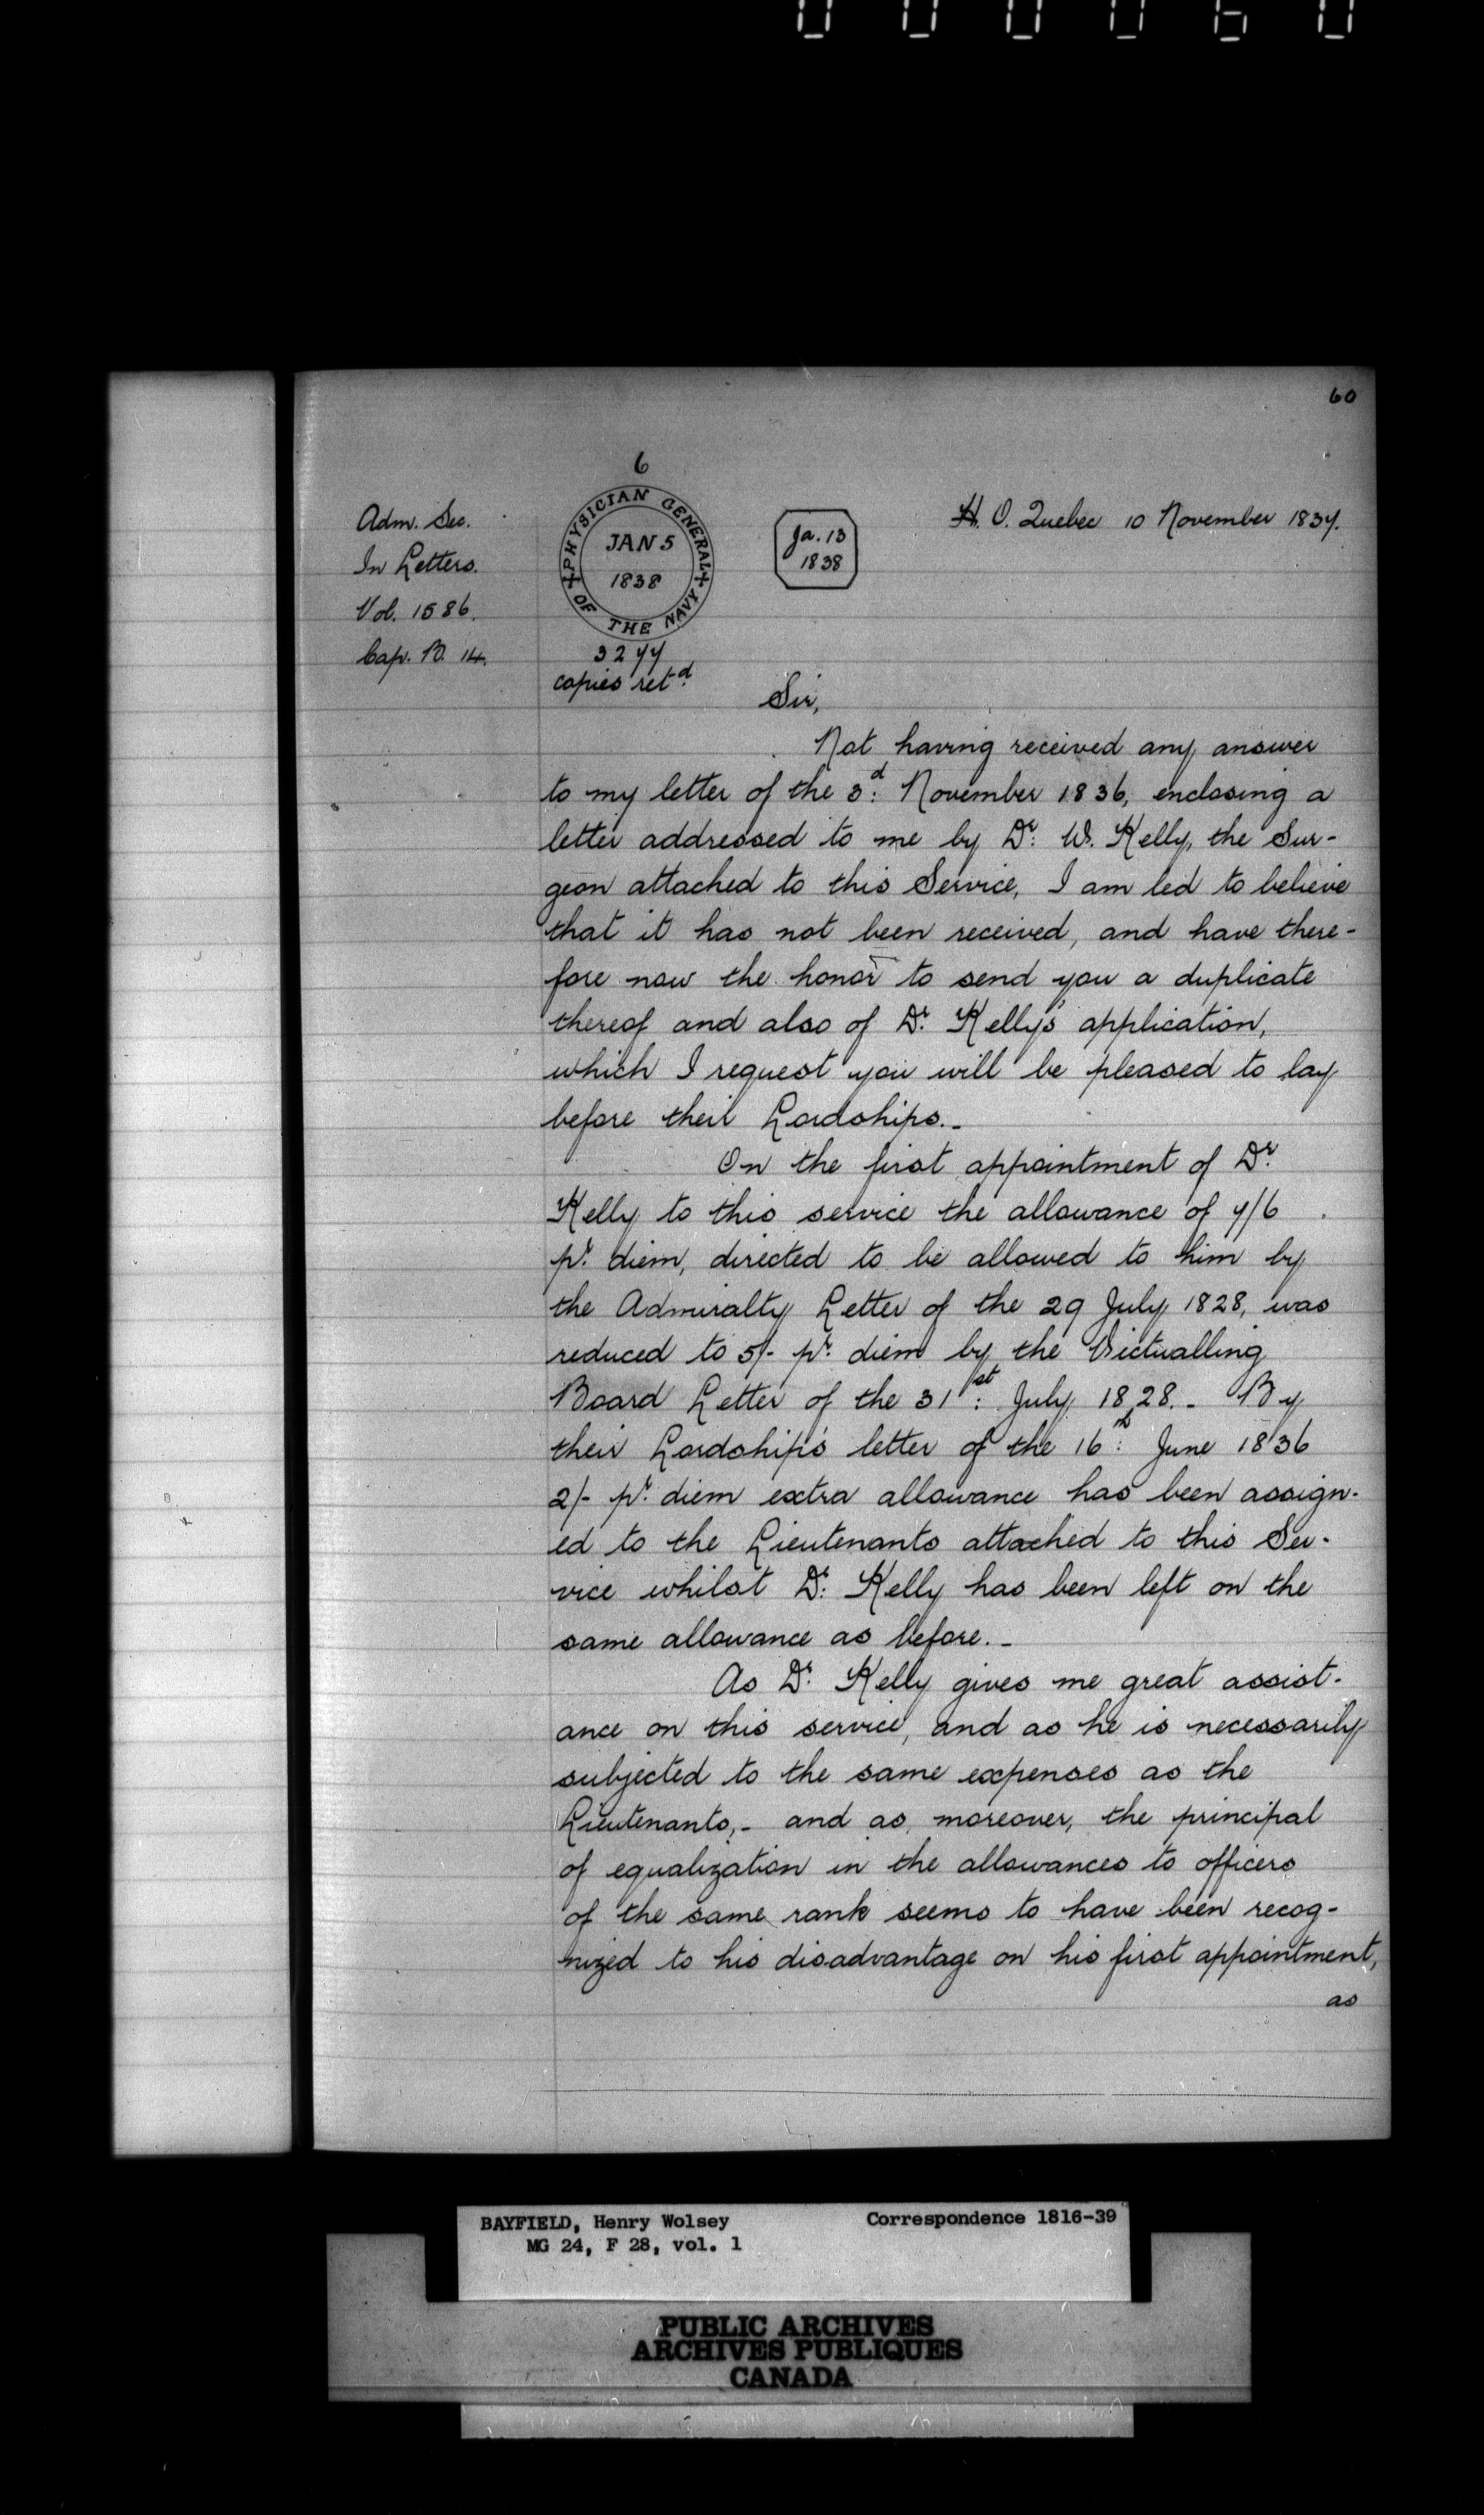 000060
60
6
Adm. Sec.
In Letters.
Vol. 1586.
Cap. B. 14.
PHYSICIAN GENERAL OF THE NAVY
JAN 5
1838
3277
copies ret.d
Ja. 13
1838
H. O. Quebec 10 November 1837.
Sir,
Not having received any answer
to my letter of the 3:d November 1836, enclosing a
letter addressed to me by Dr: W. Kelly, the Sur-
geon attached to this Service, I am led to believe
that it has not been received, and have there-
fore now the honor to send you a duplicate
thereof and also of Dr. Kelly's application,
which I request you will be pleased to lay
before their Lordships._
On the first appointment of Dr.
Kelly to this service the allowance of 7/6
pr. diem, directed to be allowed to him by
the Admiralty Letter of the 29 July 1828, was
reduced to 5/- pr. diem by the Victualling
Board Letter of the 31st: July 1828._ By
their Lordship's letter of the 16th: June 1836
2/- pr. diem extra allowance has been assign-
ed to the Lieutenants attached to this Ser-
vice whilst Dr: Kelly has been left on the
same allowance as before._
As Dr. Kelly gives me great assist-
ance on this service, and as he is necessarily
subjected to the same expenses as the
Lieutenants,_ and as, moreover, the principal
of equalization in the allowances to officers
of the same rank seems to have been recog-
nized to his disadvantage on his first appointment,
as
BAYFIELD, Henry Wolsey Correspondence 1816-39
MG 24, F 28, vol. 1
PUBLIC ARCHIVES
ARCHIVES PUBLIQUES
CANADA